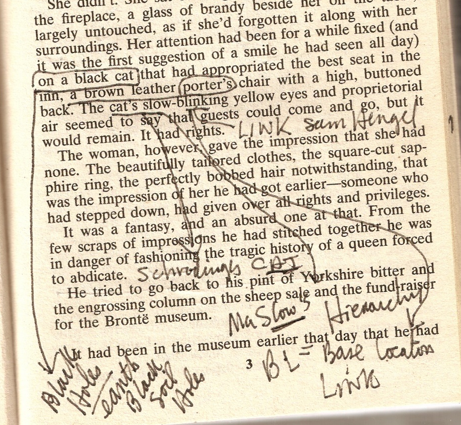 She didn't. She sat
the fireplace, a glass of brandy beside her on the
largely untouched, as if she'd forgotten it along with her
surroundings. Her attention had been for a while fixed (and
it was the first suggestion of a smile he had seen all day)
on a black cat that had appropriated the best seat in the
inn, a brown leather porter's chair with a high, buttoned
back. The cat's slow-blinking yellow eyes and proprietorial
air seemed to say that guests could come and go, but it
would remain. It had rights. LINK Sam Hengel
The woman, however, gave the impression that she had
none. The beautifully tailored clothes, the square-cut sap-
phire ring, the perfectly bobbed hair notwithstanding, that
was the impression of her he had got earlier—someone who
had stepped down, had given over all rights and privileges.
It was a fantasy, and an absurd one at that. From the
few scraps of impressions he had stitched together he was
in danger of fashioning the tragic history of a queen forced
to abdicate. Schrodingers CAT
He tried to go back to his pint of Yorkshire bitter and
the engrossing column on the sheep sale and the fund-raiser
for the Brontë museum. MaSlow's Hierarchy
It had been in the museum earlier that day that he had
3 BL = Base Location
Link
Black
Holes
earth
Black
Soil
Holes